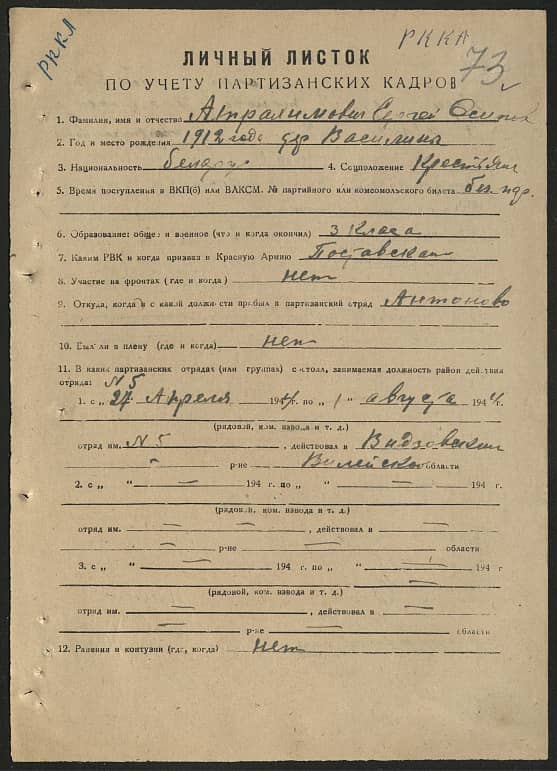 РККА
РККА
73
ЛИЧНЫЙ ЛИСТОК
ПО УЧЕТУ ПАРТИЗАНСКИХ КАДРОВ
1. Фамилия, имя и отчество Сергей
2. Год и место рождения 1912 года дер Василины
3. Национальность беларус 4. Соцположение
5. Время поступления в ВКП(б) или ВЛКСМ. № партийного или комсомольского билета
6. Образование: общее и военное (что и когда окончил) 3 Класа
7. Каким РВК и когда призван в Красную Армию Поставским
8. Участие на фронтах (где и когда) нет
9. Откуда, когда и с какой должности прибыл в партизанский отряд Антоново
10. Был ли в плену (где и когда) нет
11. В каких партизанских отрядах (или группах) состоял, занимаемая должность район действия
отряда: N 5
1. с „ 27 Апреля 1944 г. по „ 1 " августа 1944 г.
(рядовой, ком. взвода и т. д.)
отряд им. N 5, действовал в Видзовским
– р-не Вилейской области
2. с „ " — 194 г. по „ " — 194 г.
(рядовой, ком. взвода и т. д.)
отряд им. — , действовал в —
— р-не — области
3. с „ " — 194 г. по „ " — 194 г.
(рядовой, ком. взвода и т. д.)
отряд им. — , действовал в —
— р-не — области
12. Ранения и контузии (где, когда) нет